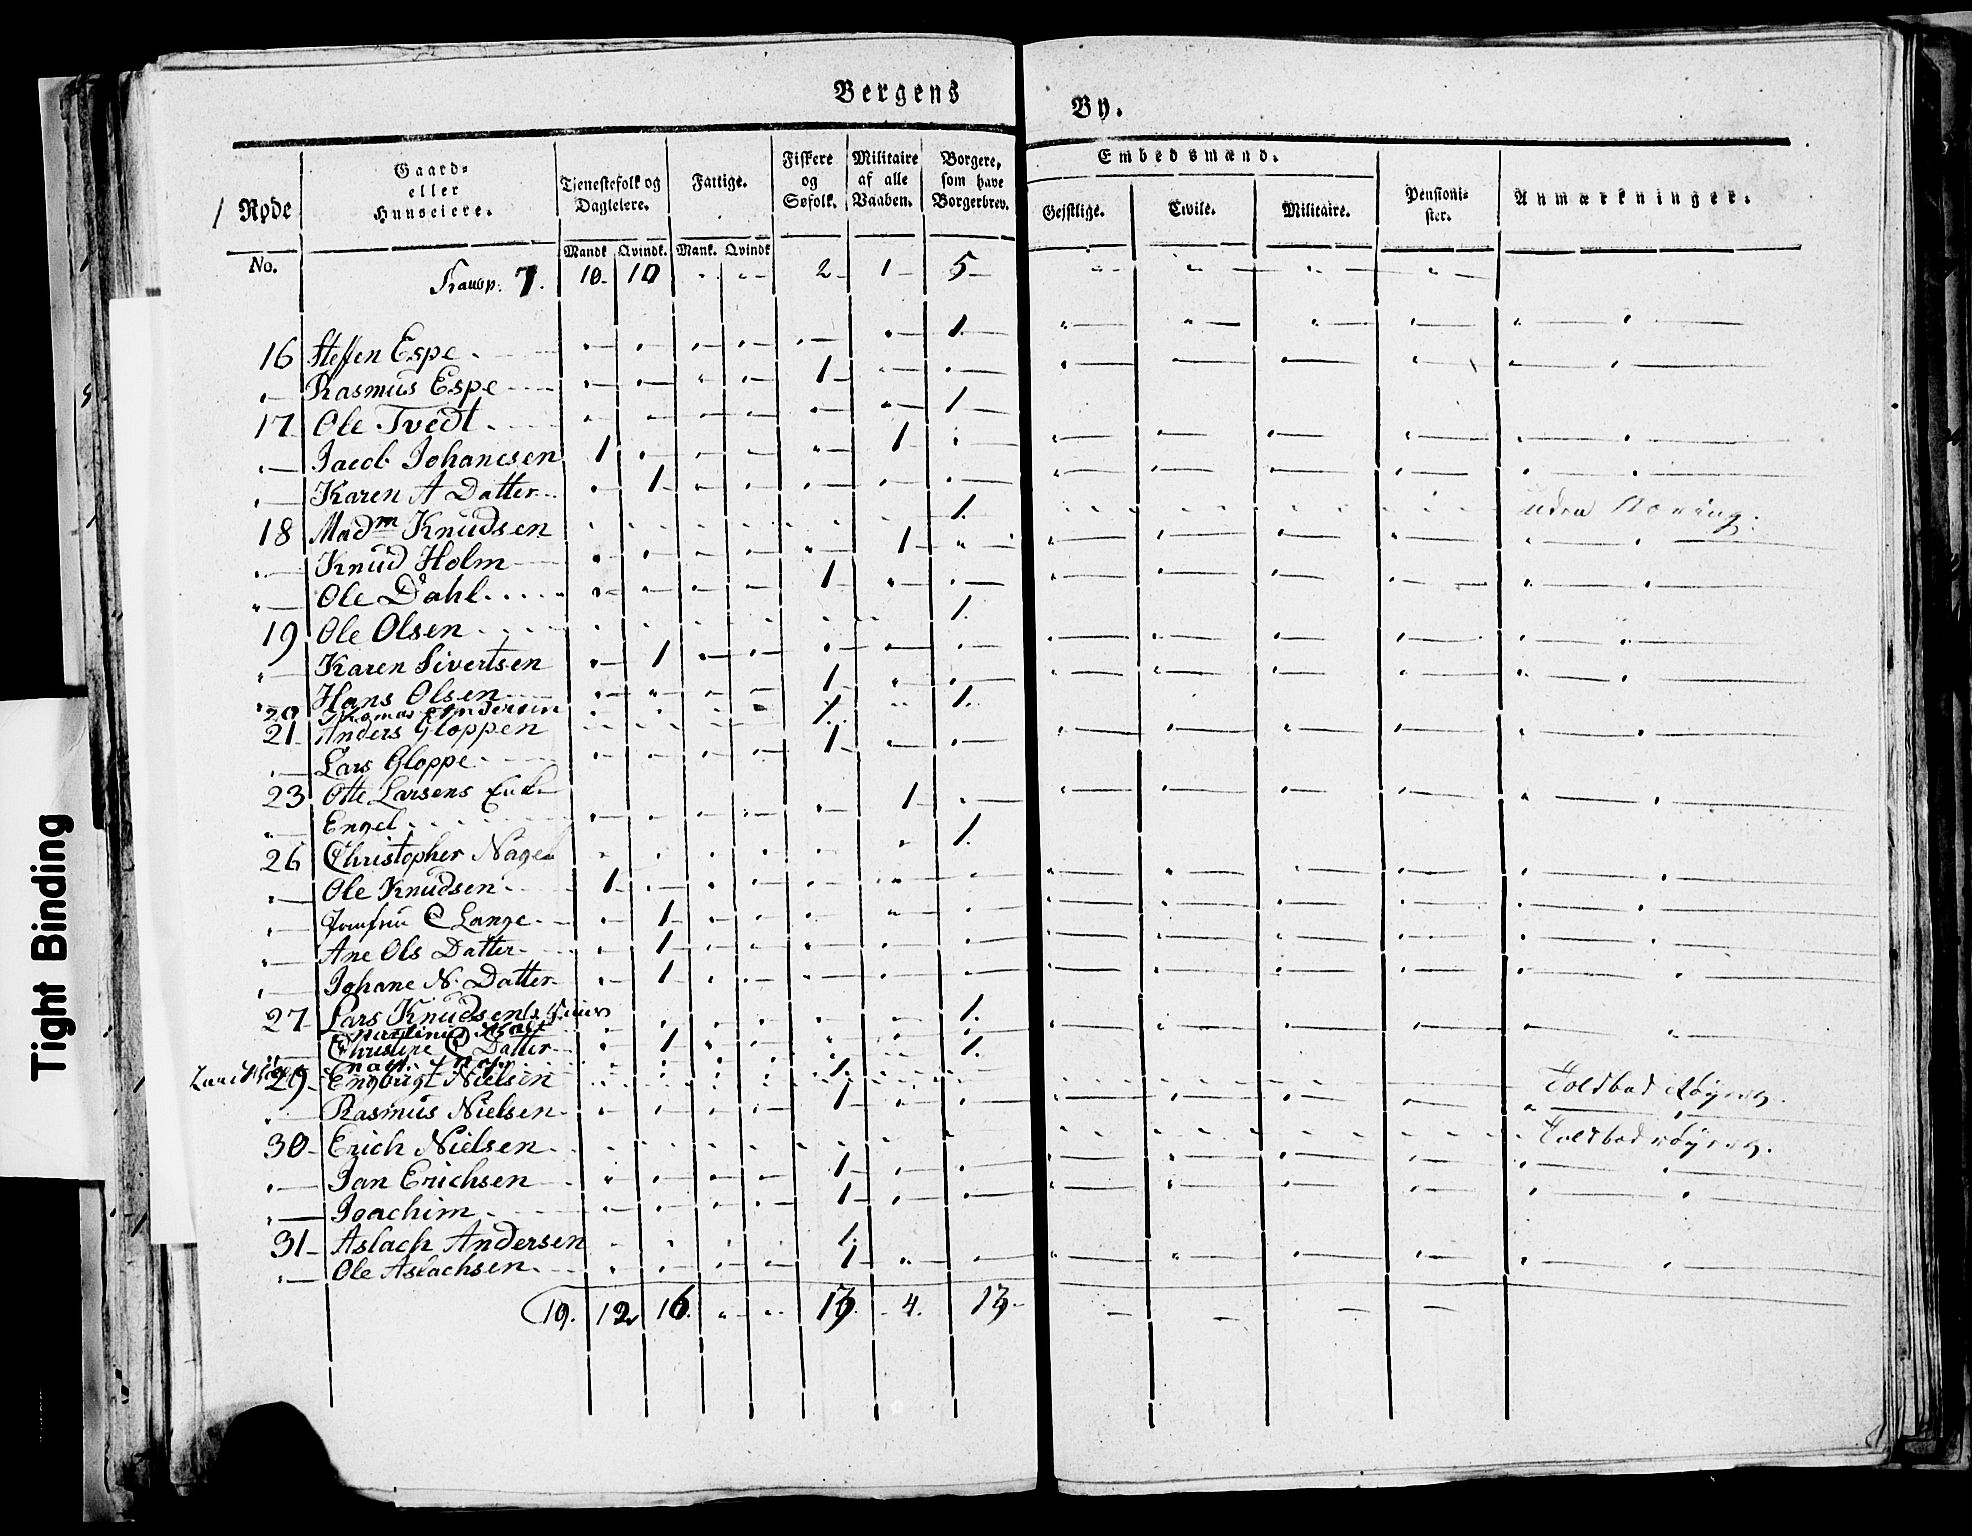 Bergens By.
1 Rode
Gaard- eller Huuseiere.
Tjenestefolk og Dagleiere.
Fattige.
Fiskere og Søfolk.
Militaire af alle Vaaben.
Borgere, som have Borgerbrev.
Embedsmænd.
Pensionister.
Anmærkninger.
Gejstlige. Civile. Militaire.
No. Mandk Qvindk. Mank. Qvindk
Transp. 7. 10 10 " " 2 1 5 " " " "
16 Steffen Espe " " " " " " 1.
" Rasmus Espe " " " " 1 " "
17 Ole Tvedt " " " " " " 1
" Jacob Johannesen 1 " " " " 1 "
" Karen A Datter " 1 " " " " "
18 Madm Knudsen " " " " " " 1. uden Næring.
" Knud Holm " " " " " 1 "
" Ole Dahl " " " " 1 " "
19 Ole Olsen " " " " " " 1.
" Karen Sivertsen " 1 " " " " "
" Hans Olsen " " " " 1 " "
20 Thomas Andersen " " " " 1. " 1.
21 Anders Gloppen
" Lars Gloppe " " " " 1 " "
23 Otte Larsens Enke
" Engel " " " " " 1 "
26 Christopher Nagel " " " " " " 1.
" Ole Knudsen 1 " " " " " "
" Jomfru C Lange " 1 " " " " "
" Ane Ols Datter " 1 " " " " "
" Johane N. Datter " 1 " " " " "
27 Lars Knudsen " " " " " " 1.
" Christine C Datter " 1 " " " " 1.
29 Engbrigt Nielsen " " " " 1. " " Toldbod
" Rasmus Nielsen " " " " 1 " "
30 Erich Nielsen " " " " " " " Toldbod
" Jan Erichsen " " " " 1 " "
" Joachim " " " " 1 " "
31 Aslach Andersen " " " " 1.
" Ole Aslachsen " " " " 1 " "
19. 12 16. " " 13. 4. 13
Tight Binding